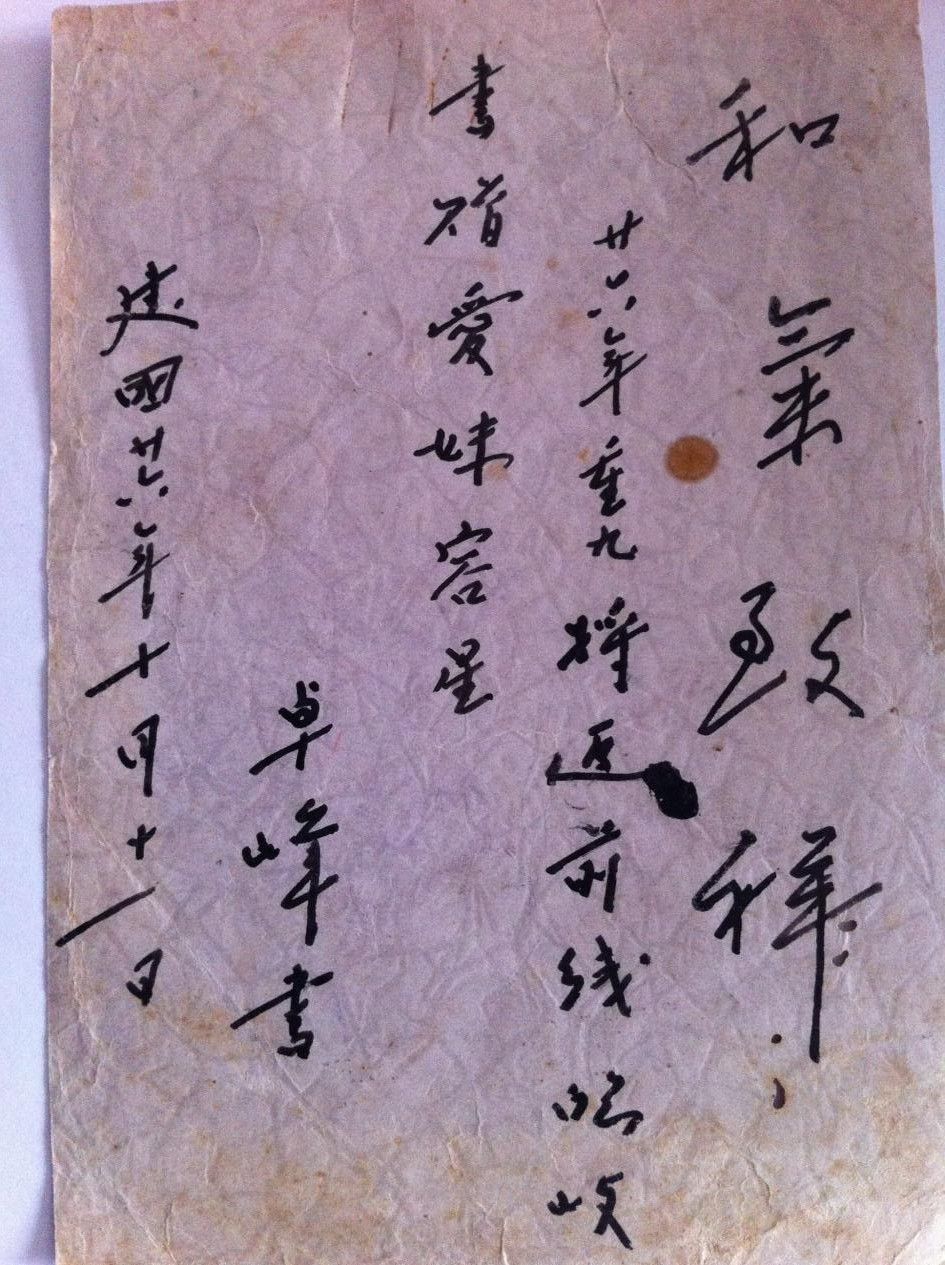 和氣致祥
廿六年重九將返前綫臨岐
書 愛妹容星
卓峰書
建國廿六年十月十一日